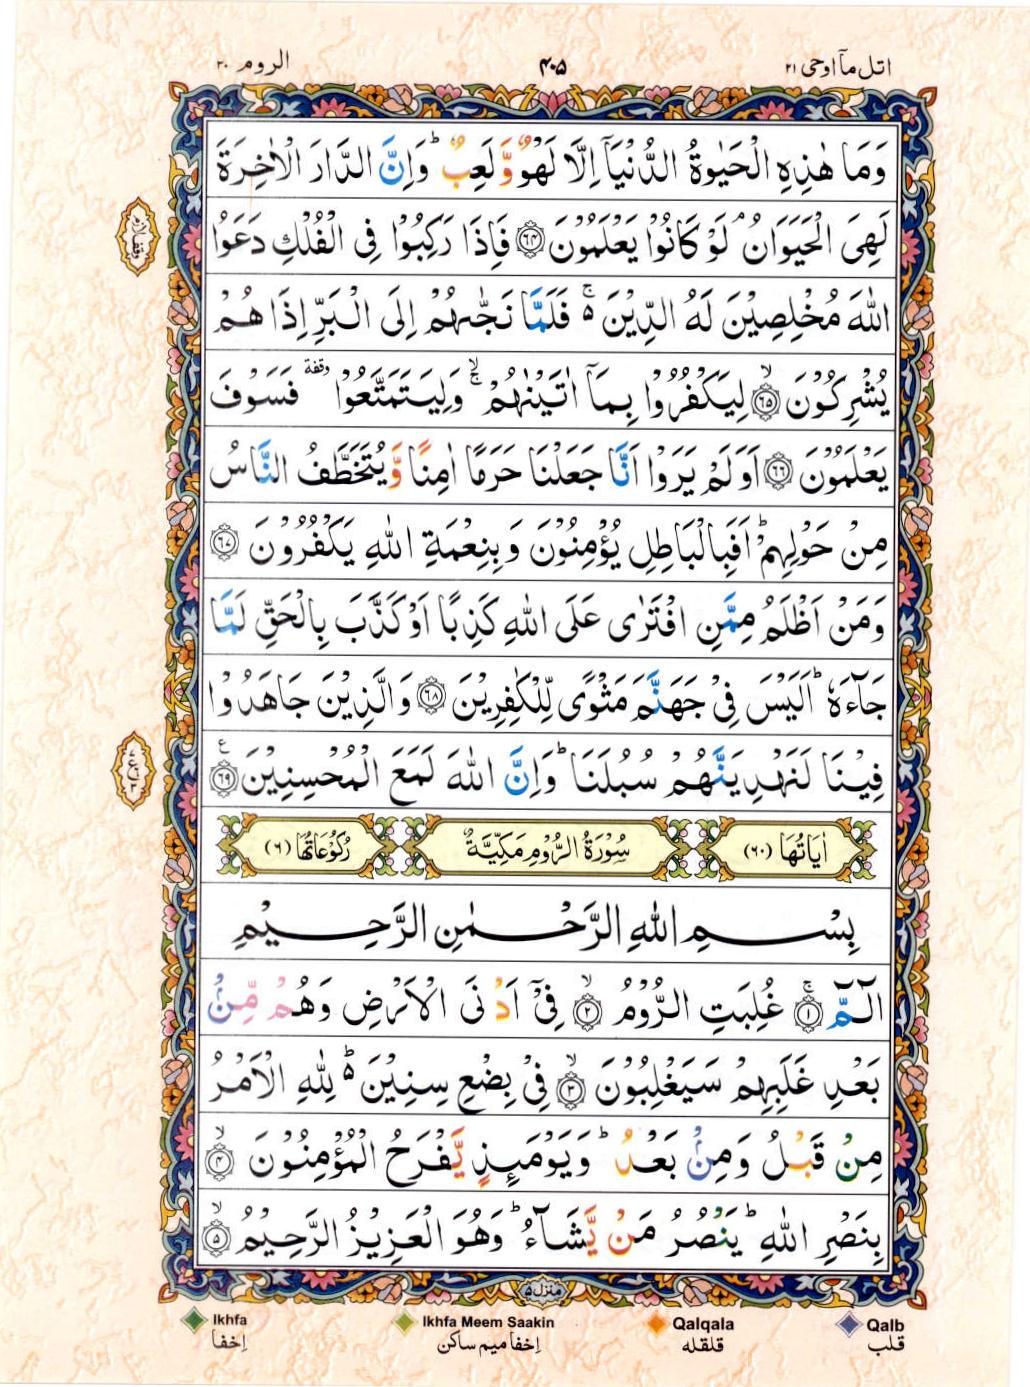 اتل مآ اوحی ۲۱
۴۰۵
الروم ۳۰
وَمَا هٰذِهِ الْحَيٰوةُ الدُّنْيَآ اِلَّا لَهْوٌ وَّلَعِبٌ ؕ وَاِنَّ الدَّارَ الْاٰخِرَةَ
لَهِىَ الْحَيَوَانُ ۘ لَوْ كَانُوْا يَعْلَمُوْنَ ﴿۶۴﴾ فَاِذَا رَكِبُوْا فِى الْفُلْكِ دَعَوُا
اللّٰهَ مُخْلِصِيْنَ لَهُ الدِّيْنَ ۬ۚ فَلَمَّا نَجّٰٮهُمْ اِلَى الْبَرِّ اِذَا هُمْ
يُشْرِكُوْنَ ۙ﴿۶۵﴾ لِيَكْفُرُوْا بِمَاۤ اٰتَيْنٰهُمْ ۚۙ وَلِيَتَمَتَّعُوْا وقفة فَسَوْفَ
يَعْلَمُوْنَ ﴿۶۶﴾ اَوَلَمْ يَرَوْا اَنَّا جَعَلْنَا حَرَمًا اٰمِنًا وَّيُتَخَطَّفُ النَّاسُ
مِنْ حَوْلِهِمْ ؕ اَفَبِالْبَاطِلِ يُؤْمِنُوْنَ وَبِنِعْمَةِ اللّٰهِ يَكْفُرُوْنَ ﴿۶۷﴾
وَمَنْ اَظْلَمُ مِمَّنِ افْتَرٰى عَلَى اللّٰهِ كَذِبًا اَوْ كَذَّبَ بِالْحَقِّ لَمَّا
جَآءَهٗ ؕ اَلَيْسَ فِىْ جَهَنَّمَ مَثْوًى لِّلْكٰفِرِيْنَ ﴿۶۸﴾ وَالَّذِيْنَ جَاهَدُوْا
فِيْنَا لَنَهْدِيَنَّهُمْ سُبُلَنَا ؕ وَاِنَّ اللّٰهَ لَمَعَ الْمُحْسِنِيْنَ ﴿۶۹﴾ ع
اٰيَاتُهَا (۶۰)
سُوْرَةُ الرُّوْمِ مَكِّيَّةٌ
رُكُوْعَاتُهَا (۶)
بِسْمِ اللّٰهِ الرَّحْمٰنِ الرَّحِيْمِ
الٓمّٓ ۚ﴿۱﴾ غُلِبَتِ الرُّوْمُ ۙ﴿۲﴾ فِىْۤ اَدْنَى الْاَرْضِ وَهُمْ مِّنْۢ
بَعْدِ غَلَبِهِمْ سَيَغْلِبُوْنَ ۙ﴿۳﴾ فِىْ بِضْعِ سِنِيْنَ ؕ۬ لِلّٰهِ الْاَمْرُ
مِنْ قَبْلُ وَمِنْۢ بَعْدُ ؕ وَيَوْمَئِذٍ يَّفْرَحُ الْمُؤْمِنُوْنَ ۙ﴿۴﴾
بِنَصْرِ اللّٰهِ ؕ يَنْصُرُ مَنْ يَّشَآءُ ؕ وَهُوَ الْعَزِيْزُ الرَّحِيْمُ ۙ﴿۵﴾
منزل ۵
Ikhfa
اِخفا
Ikhfa Meem Saakin
اِخفا میم ساکن
Qalqala
قلقلہ
Qalb
قلب